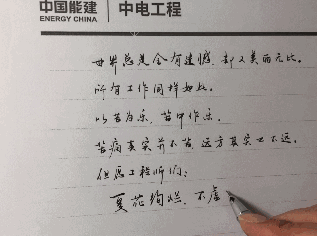 中国能建 中电工程
ENERGY CHINA
世界总是会有遗憾，却又美丽无比。
所有工作同样如此。
以苦为乐，苦中作乐。
苦痛其实并不苦，远方其实也不远。
但愿工程师们：
夏花绚烂，不虚